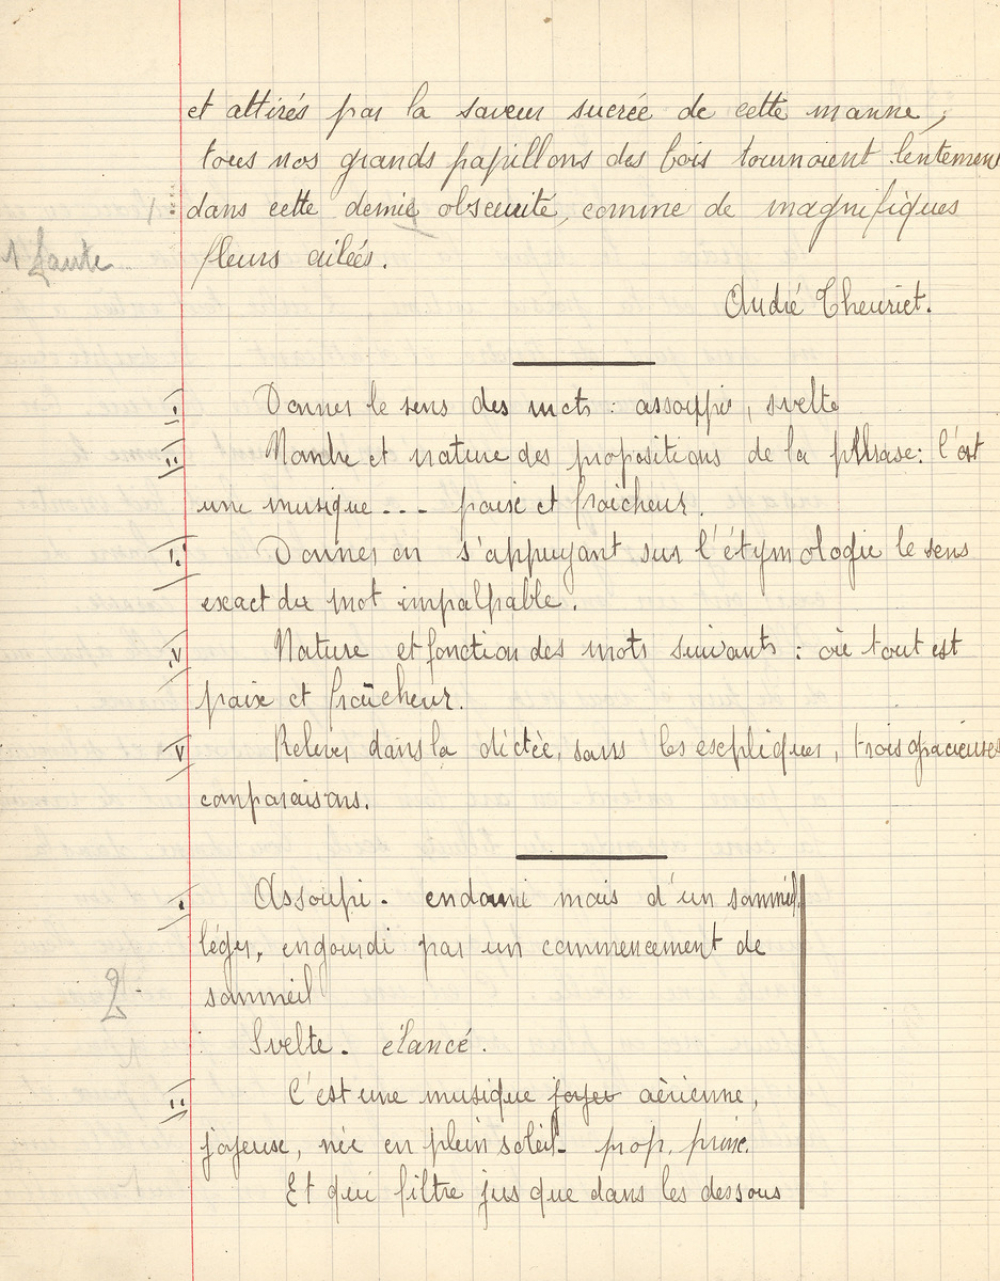 et attirés par la saveur sucrée de cette manne,
tous nos grands papillons des bois tournoient lentement
dans cette demie obscurité, comme de magnifiques
1 faute
fleurs ailées.
André Theuriet.
I Donner le sens des mots : assoupi, svelte
II Nombre et nature des propositions de la phrase: C'est
une musique --- paix et fraîcheur.
Donner en s'appuyant sur l'étymologie le sens
exact du mot impalpable.
IV Nature et fonction des mots suivants : où tout est
paix et fraîcheur.
V Relever dans la dictée, sans les expliquer, trois gracieuses
comparaisons.
I Assoupi. endormi mais d'un sommeil
léger, engourdi par un commencement de
2
sommeil
Svelte. élancé.
II C'est une musique aérienne,
joyeuse, née en plein soleil - prop. princ.
Et qui filtre jusque dans les dessous